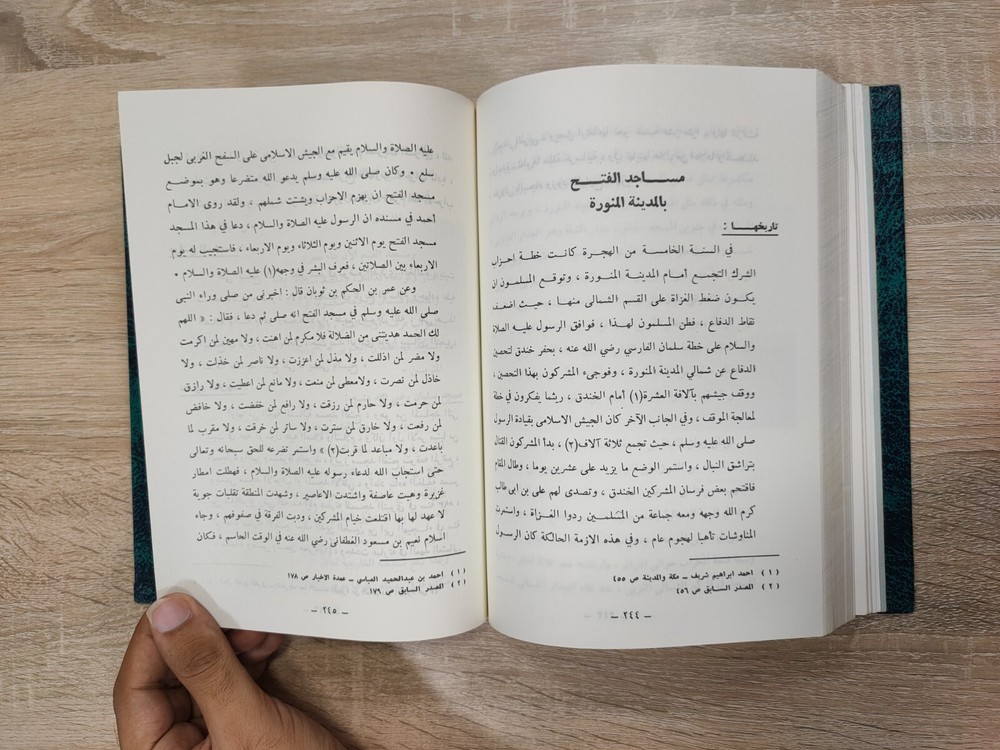 مساجد الفتح
بالمدينة المنورة
تاريخها :
في السنة الخامسة من الهجرة كانت خطة احزاب
الشرك التجمع أمام المدينة المنورة ، وتوقع المسلمون ان
يكون ضغط الغزاة على القسم الشمالى منها ، حيث اضعف
نقاط الدفاع ، فطن المسلمون لهذا ، فوافق الرسول عليه الصلاة
والسلام على خطة سلمان الفارسي رضي الله عنه ، بحفر خندق لتحصين
الدفاع عن شمالي المدينة المنورة ، وفوجىء المشركون بهذا التحصين ،
ووقف جيشهم بآلافة العشرة(١) أمام الخندق ، ريثما يفكرون في خطة
لمعالجة الموقف ، وفي الجانب الآخر كان الجيش الاسلامى بقيادة الرسول
صلى الله عليه وسلم ، حيث تجمع ثلاثة آلاف(٢) ، بدأ المشركون القتال
بتراشق النبال ، واستمر الوضع ما يزيد على عشرين يوما ، وطال المقام
فاقتحم بعض فرسان المشركين الخندق ، وتصدى لهم على بن ابى طالب
كرم الله وجهه ومعه جماعة من المسلمين ردوا الغزاة ، واستمرت
المناوشات تأهبا لهجوم عام ، وفي هذه الازمة الحالكة كان الرسول
( ١ ) احمد ابراهيم شريف ــ مكة والمدينة ص ٤٥٥
( ٢ ) المصدر السابق ص ٤٥٦
ــ ٢٤٤ ــ
عليه الصلاة والسلام يقيم مع الجيش الاسلامى على السفح الغربى لجبل
سلع • وكان صلى الله عليه وسلم يدعو الله متضرعا وهو بموضع
مسجد الفتح ان يهزم الاحزاب ويشتت شملهم ، ولقد روى الامام
أحمد في مسنده ان الرسول عليه الصلاة والسلام ، دعا في هذا المسجد
مسجد الفتح يوم الاثنين ويوم الثلاثاء ويوم الاربعاء ، فاستجيب له يوم
الاربعاء بين الصلاتين ، فعرف البشر في وجهه(١) عليه الصلاة والسلام •
وعن عمر بن الحكم بن ثوبان قال : اخبرنى من صلى وراء النبى
صلى الله عليه وسلم في مسجد الفتح انه صلى ثم دعا ، فقال : « اللهم
لك الحمد هديتنى من الضلالة فلا مكرم لمن اهنت ، ولا مهين لمن اكرمت
ولا مضر لمن اذللت ، ولا مذل لمن اعززت ، ولا ناصر لمن خذلت ، ولا
خاذل لمن نصرت ، ولامعطى لمن منعت ، ولا مانع لمن اعطيت ، ولا رازق
لمن حرمت ، ولا حارم لمن رزقت ، ولا رافع لمن خفضت ، ولا خافض
لمن رفعت ، ولا خارق لمن سترت ، ولا ساتر لمن خرقت ، ولا مقرب لما
باعدت ، ولا مباعد لما قربت(٢) » واستمر تضرعه للحق سبحانه وتعالى
حتى استجاب الله لدعاء رسوله عليه الصلاة والسلام ، فهطلت امطار
غزيرة وهبت عاصفة واشتدت الاعاصير ، وشهدت المنطقة تقلبات جوية
لا عهد لها بها اقتلعت خيام المشركين ، ودبت الفرقة في صفوفهم ، وجاء
اسلام نعيم بن مسعود الغطفانى رضي الله عنه في الوقت الحاسم ، فكان
( ١ ) احمد بن عبدالحميد العباسي ــ عمدة الاخبار ص ١٧٨
( ٢ ) المصدر السابق ص ١٧٩
ــ ٢٤٥ ــ